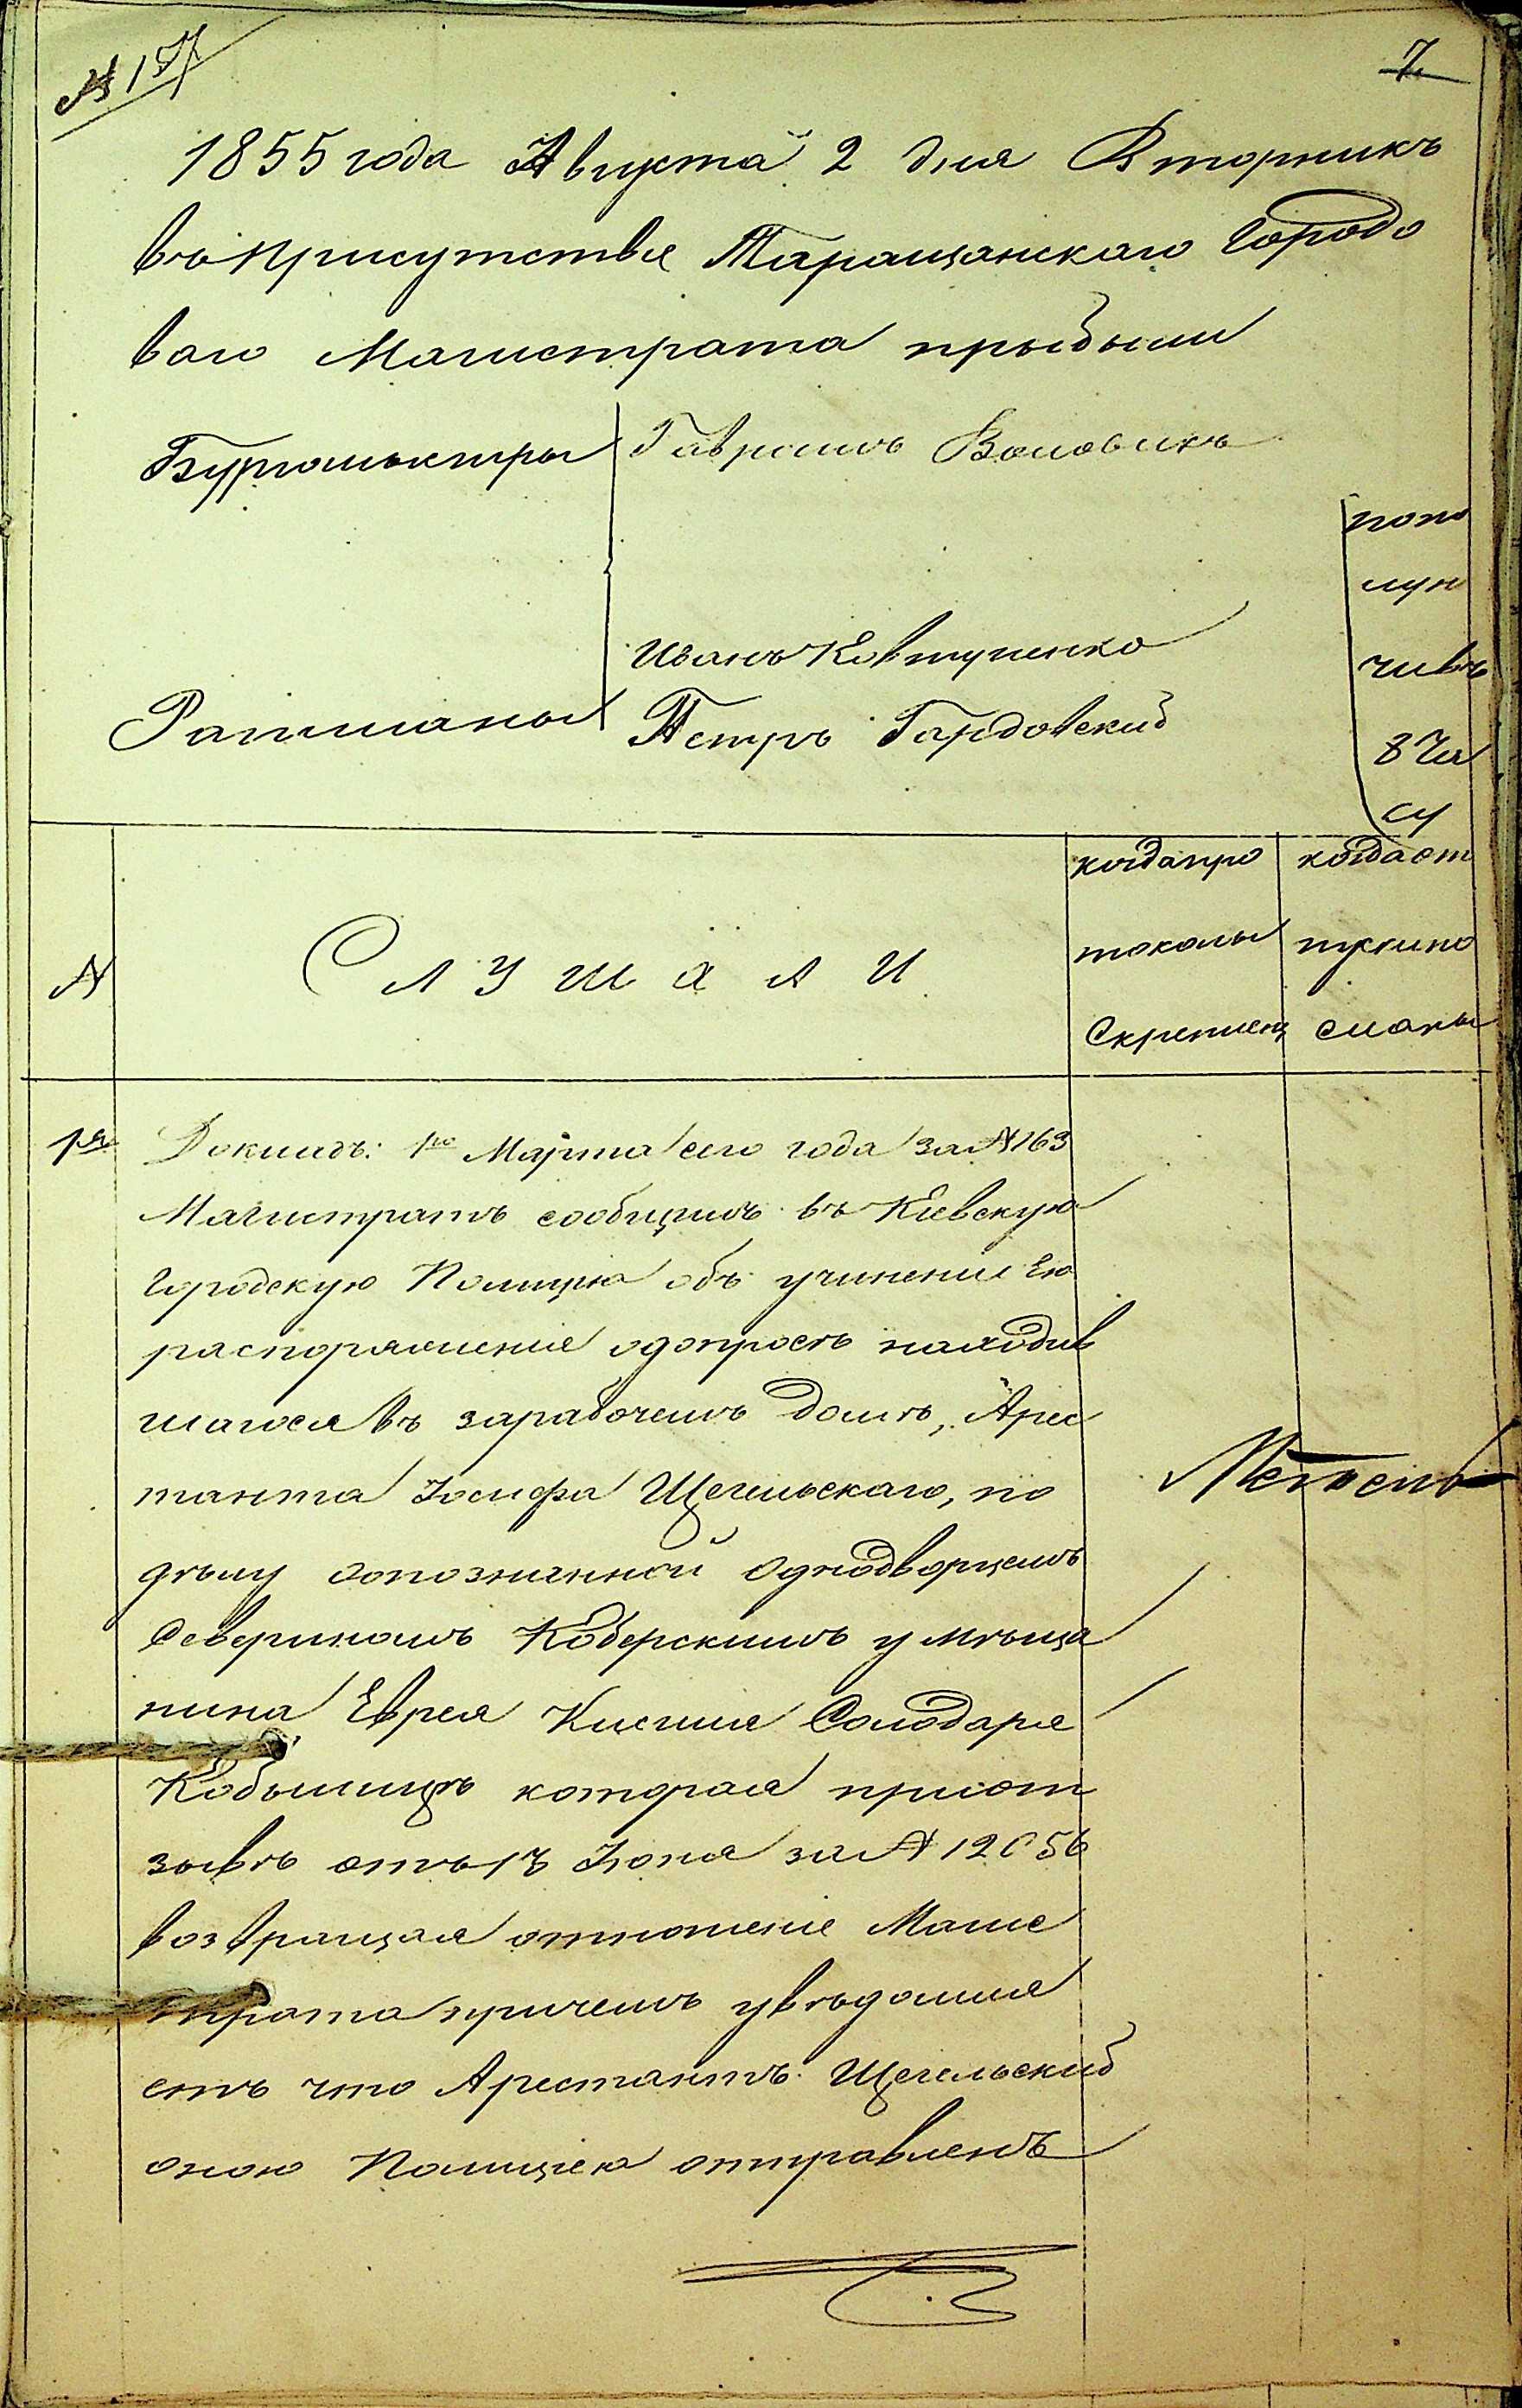 № 157
7
1855 года Августа 2 дня Вторникъ
въ присутствіе Таращанскаго Городо
ваго Магистрата прыбыли
Бургомыстры Гаврыилъ Воловикъ
Иванъ Ковтуненко
Ратманы Петръ Гардовский
попо
луно
чивъ
8 Ча
су
№
Слушали
когда про
токолы
Скреплен
когда от
пуск ипо
сланы
1я
Докладъ: 1го Марта сего года за №163
Магистратъ сообщилъ въ Кіевскую
Городскую Полицію объ учинении Ею
распоряженія одопросѣ находив
шагося въ зарабочемъ домѣ, Арес
танта Іосифа Щегельскаго, по
дѣлу оопознанной Однодворцемъ
Северином​ъ Коберскимъ у мѣща
нина Еврея Кисиля Солодаря
Кобылицѣ которая приот
зывѣ отъ 13 Іюня за № 12056
возвращая отношеніе Маги
трата причемъ увѣдомля
етъ что Арестантъ Щегельский
оною Полиціею отправленъ